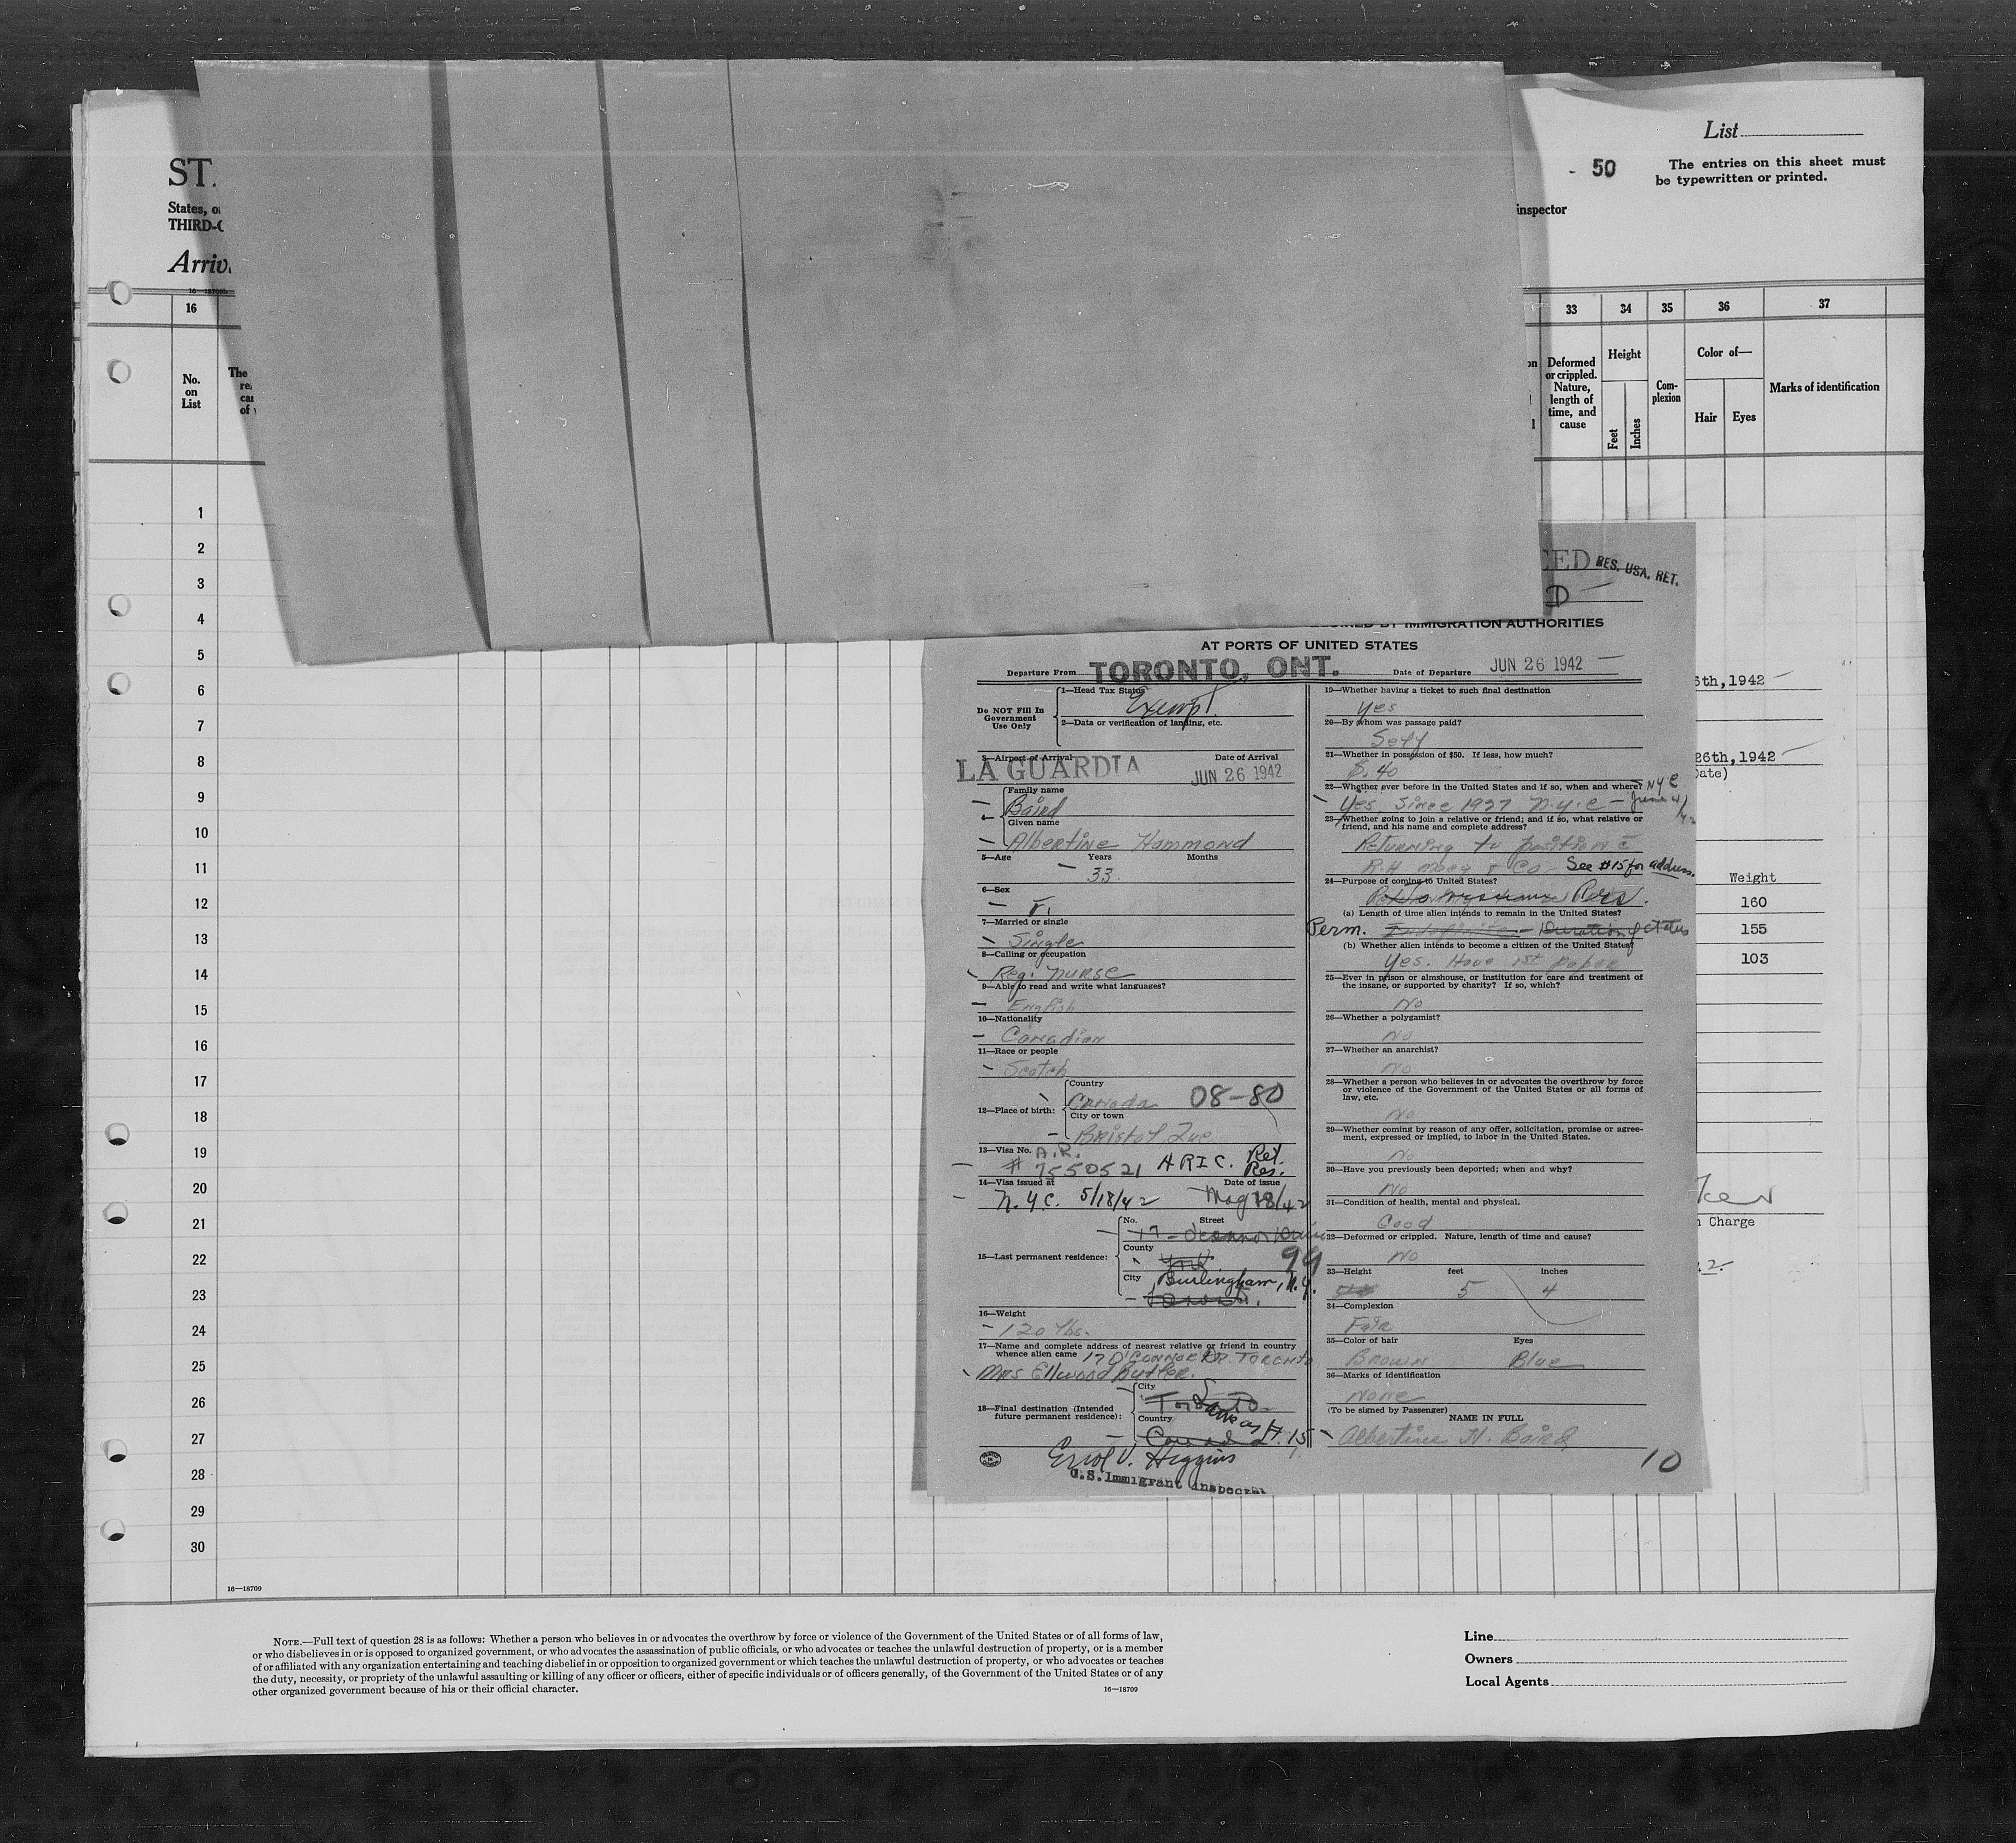 ST.
States, o
THIRD-C
Arriv
16—18709
List
- 50
The entries on this sheet must
be typewritten or printed.
inspector
16
33
34
35
36
37
No.
on
List
The
re
ca
of
Deformed
or crippled.
Nature,
length of
time, and
cause
Height
Feet
Inches
Com-
plexion
Color of—
Hair
Eyes
Marks of identification
1
2
3
4
5
6
7
8
9
10
11
12
13
14
15
16
17
18
19
20
21
22
23
24
25
26
27
28
29
30
CED RES. USA. RET.
D
IMMIGRATION AUTHORITIES
AT PORTS OF UNITED STATES
Departure From TORONTO, ONT. Date of Departure JUN 26 1942
Do NOT Fill In
Government
Use Only
1—Head Tax Status
Exempt
2—Data or verification of landing, etc.
3—Airport of Arrival Date of Arrival
LA GUARDIA JUN 26 1942
Family name
4— Baird
Given name
Albertine Hammond
5—Age Years Months
33
6—Sex
F.
7—Married or single
Single
8—Calling or occupation
Reg. Nurse
9—Able to read and write what languages?
English
10—Nationality
Canadian
11—Race or people
Scotch
12—Place of birth:
Country
Canada 08-80
City or town
Bristol Que
13—Visa No. A.R.
# 7550521 A R I C. Ret.
Res.
14—Visa issued at Date of issue
N.Y.C. 5/18/42 May 18/42
15—Last permanent residence:
No. Street
17 -
County
99
City Burlingham, N.Y.
Toronto.
16—Weight
120 lbs.
17—Name and complete address of nearest relative or friend in country
whence alien came 17 O'CONNOR DR. TORONTO
Mrs Ellwood Butler.
18—Final destination (Intended
future permanent residence):
City
Toronto
Same as # 15
Country
Canada
Errol V. Higgins
U.S. Immigrant Inspector
19—Whether having a ticket to such final destination
Yes
20—By whom was passage paid?
Self
21—Whether in possession of $50. If less, how much?
$.40
22—Whether ever before in the United States and if so, when and where? NYC
Yes since 1927 N.Y.C - June 4/42
23—Whether going to join a relative or friend; and if so, what relative or
friend, and his name and complete address?
Returning to position c̄
R.H Macy & Co See #15 for address.
24—Purpose of coming to United States?
Res.
(a) Length of time alien intends to remain in the United States?
Perm. Indefinite - Duration of status
(b) Whether alien intends to become a citizen of the United States?
Yes. Have 1st paper
25—Ever in prison or almshouse, or institution for care and treatment of
the insane, or supported by charity? If so, which?
No
26—Whether a polygamist?
No
27—Whether an anarchist?
No
28—Whether a person who believes in or advocates the overthrow by force
or violence of the Government of the United States or all forms of
law, etc.
No
29—Whether coming by reason of any offer, solicitation, promise or agree-
ment, expressed or implied, to labor in the United States.
No
30—Have you previously been deported; when and why?
No
31—Condition of health, mental and physical.
Good
32—Deformed or crippled. Nature, length of time and cause?
No
33—Height feet inches
5 4
34—Complexion
Fair
35—Color of hair Eyes
Brown Blue
36—Marks of identification
None
(To be signed by Passenger)
NAME IN FULL
Albertine H. Baird
10
6th,1942
26th,1942
Date)
Weight
160
155
103
n Charge
16—18709
NOTE.—Full text of question 28 is as follows: Whether a person who believes in or advocates the overthrow by force or violence of the Government of the United States or of all forms of law,
or who disbelieves in or is opposed to organized government, or who advocates the assassination of public officials, or who advocates or teaches the unlawful destruction of property, or is a member
of or affiliated with any organization entertaining and teaching disbelief in or opposition to organized government or which teaches the unlawful destruction of property, or who advocates or teaches
the duty, necessity, or propriety of the unlawful assaulting or killing of any officer or officers, either of specific individuals or of officers generally, of the Government of the United States or of any
other organized government because of his or their official character.
16—18709
Line
Owners
Local Agents